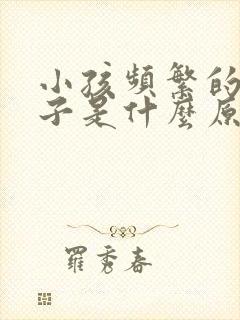 小孩頻繁的
子是什麼原
羅秀春